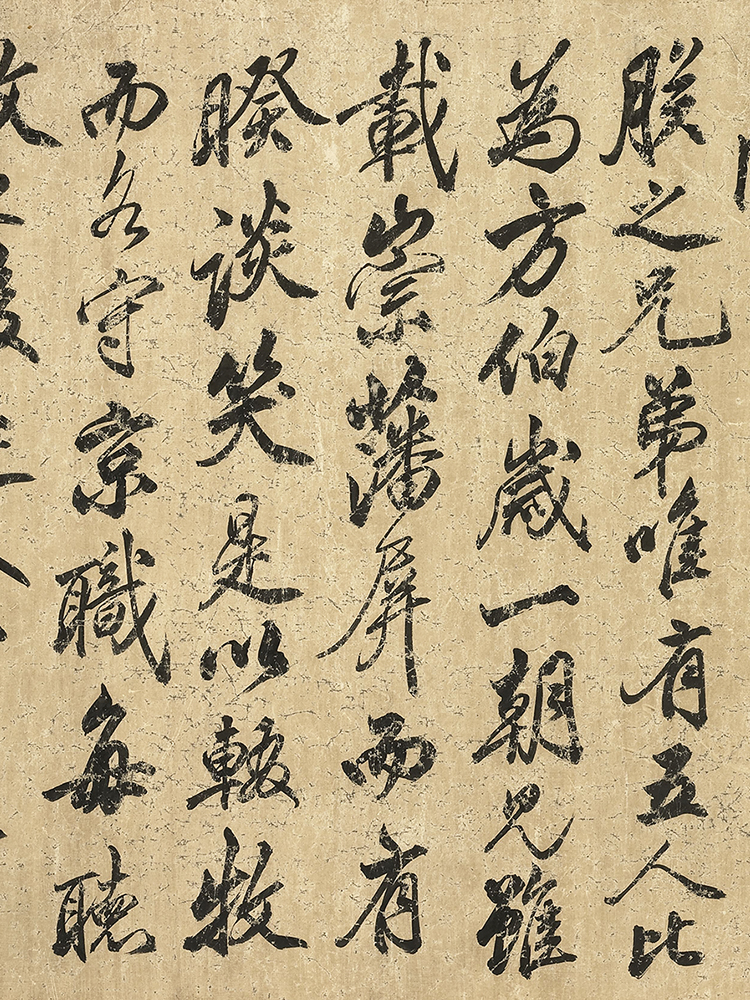 朕之兄弟唯有五人比
為方伯歲一朝見雖
載崇藩屏而有
睽談笑是以輟牧
而各守京職每聽